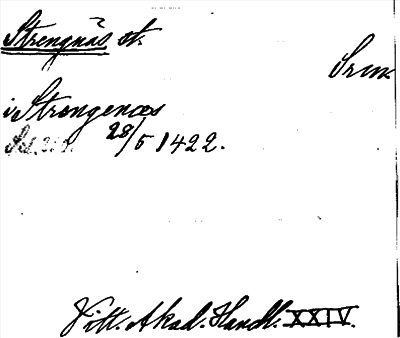 Strengnäs st.
Srm
i Strengenæs
28/5 1422.
Vitt. Akad. Handl. XXIV.